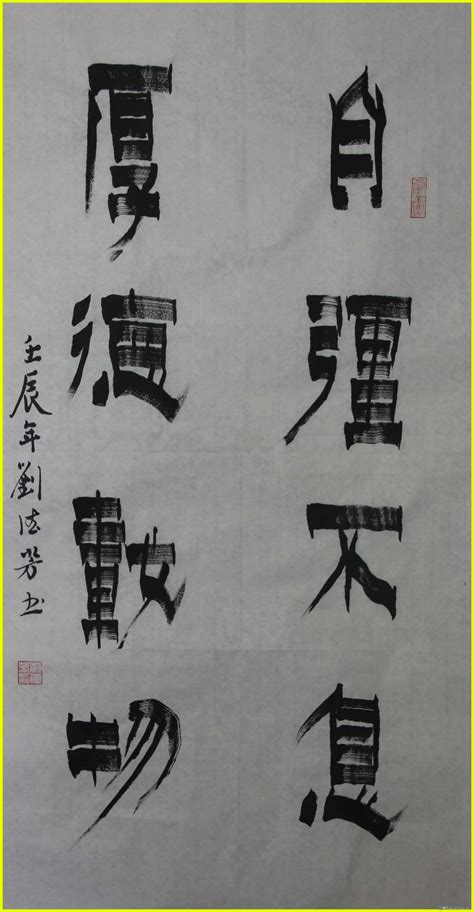 自彊不息
厚德載物
壬辰年劉德芳书